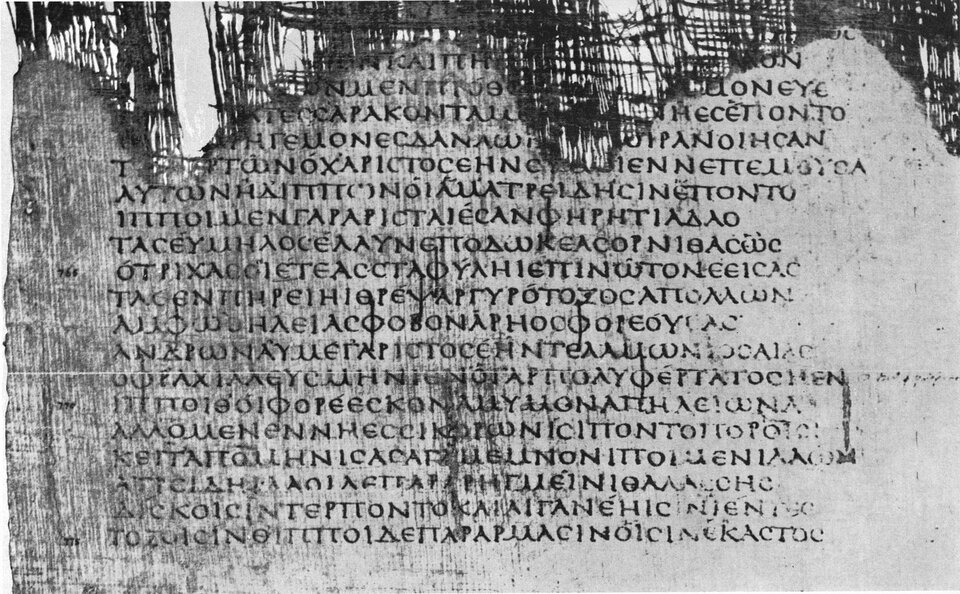 ΝΚΑΙΠΗ ΟΝ
ΩΝΜΕΝΠΡΟΘ ΜΟΝΕΥΕ
ΤΕCCΑΡΑΚΟΝΤΑΜ ΝΗΕCΕΠΟΝΤΟ
ΗΓΕΜΟΝΕCΔΑΝΑΩ ΟΙΡΑΝΟΙΗCΑΝ
Τ ΡΤΩΝΟΧΑΡΙCΤΟCΕΗΝC ΜΙΕΝΝΕΠΕΜΟΥCΑ
ΑΥΤΩΝΗΔΙΠΠΩΝΟΙΑΜΑΤΡΕΙΔΗCΙΝΕΠΟΝΤΟ
ΙΠΠΟΙΜΕΝΓΑΡΑΡΙCΤΑΙΕCΑΝΦΗΡΗΤΙΑΔΑΟ
ΤΑCΕΥΜΗΛΟCΕΛΑΥΝΕΠΟΔΩΚΕΑCΟΡΝΙΘΑCΩC
ΟΤΡΙΧΑCΟΙΕΤΕΑCCΤΑΦΥΛΗΙΕΠΙΝΩΤΟΝΕΕΙCΑC
ΤΑCΕΝΠΗΡΕΙΗΙΘΡΕΨΑΡΓΥΡΟΤΟΞΟCΑΠΟΛΛΩΝ
ΑΜΦΩΘΗΛΕΙΑCΦΟΒΟΝΑΡΗΟCΦΟΡΕΟΥCΑC
ΑΝΔΡΩΝΑΥΜΕΓΑΡΙCΤΟCΕΗΝΤΕΛΑΜΩΝΙΟCΑΙΑC
ΟΦΡΑΧΙΛΛΕΥCΜΗΝΙΕΝΟΓΑΡΠΟΛΥΦΕΡΤΑΤΟCΗΕΝ
ΙΠΠΟΙΘΟΙΦΟΡΕΕCΚΟΝΑΜΥΜΟΝΑΠΗΛΕΙΩΝΑ
ΑΛΛΟΜΕΝΕΝΝΗΕCCΙΚΟΡΩΝΙCΙΠΟΝΤΟΠΟΡΟΙCΙ
ΚΕΙΤΑΠΟΜΗΝΙCΑCΑΓΑΜΕΜΝΟΝΙΠΟΙΜΕΝΙΛΑΩΝ
ΑΤΡΕΙΔΗΙΛΑΟΙΔΕΠΑΡΑΡΗΓΜΕΙΝΙΘΑΛΑCCΗC
ΔΙCΚΟΙCΙΝΤΕΡΠΟΝΤΟΚΑΙΑΙΓΑΝΕΗΙCΙΝΙΕΝΤΕC
ΤΟΞΟΙCΙΝΘΙΠΠΟΙΔΕΠΑΡΑΡΜΑCΙΝΟΙCΙΝΕΚΑCΤΟC